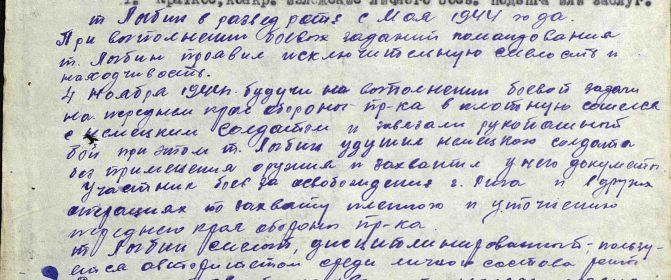 1. Краткое, конкр. изложение личного боев. подвига или заслуг.
т Лыбин в развед роте с Мая 1944 года.
При выполнении боевых заданий командования
т. Лыбин проявил исключительную смелость и
находчивость.
4 Ноября 1944г. будучи на выполнении боевой задачи
на переднем крае обороны пр-ка в плотную сошелся
с немецким солдатом и завязали рукопашный
бой при этом т. Лыбин удушил немецкого солдата
без применения оружия и захватил у него документы.
Участник боев за освобождения г. Рига и в других
операциях по захвату пленного и уточнению
переднего края обороны пр-ка.
т Лыбин смелый, дисциплинированный, пользу-
ется авторитетом среди личного состава роты